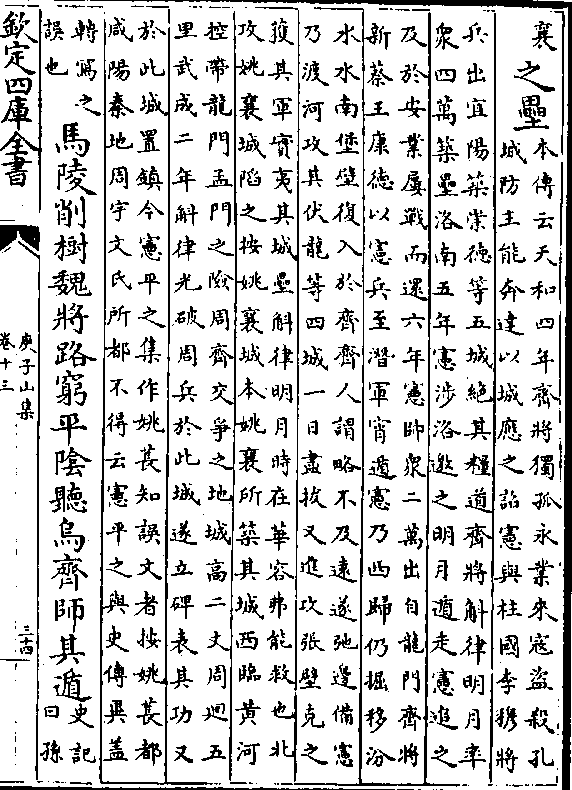 襄之壘本傳云天和四年齊將獨孤永業來寇盜殺孔
城防主能奔達以城應之詔憲與柱國李穆將
兵出宜陽築崇德等五城絶其糧道齊將斛律明月率
衆四萬築壘洛南五年憲涉洛邀之明月遁走憲追之
及於安業屢戰而還六年憲師衆二萬出自龍門齊將
新蔡王康德以憲兵至潛軍宵遁憲乃西歸仍掘移汾
水水南堡壁復入於齊齊人謂略不及逺遂弛邊備憲
乃渡河攻其伏龍等四城一日盡拔又進攻張壁克之
獲其軍實夷其城壘斛律明月時在華容弗能救也北
攻姚襄城陷之按姚襄城本姚襄所築其城西臨黄河
控帶龍門孟門之險周齊交爭之地城高二丈周迴五
里武成二年斛律光破周兵於此城遂立碑表其功又
於此城置鎮今憲平之集作姚萇知誤文者按姚萇都
咸陽秦地周宇文氏所都不得云憲平之與史傳異蓋
轉寫之
誤也
馬陵削樹魏將路窮平陰聽烏齊師其遁史記
曰孫
欽定四庫全書
庾子山集
卷十三
三十四